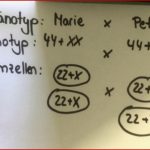 änotyp: Marie x Pet
otyp: 44+XX x 44+
mzellen: 22+X 22+
22+X x 22+